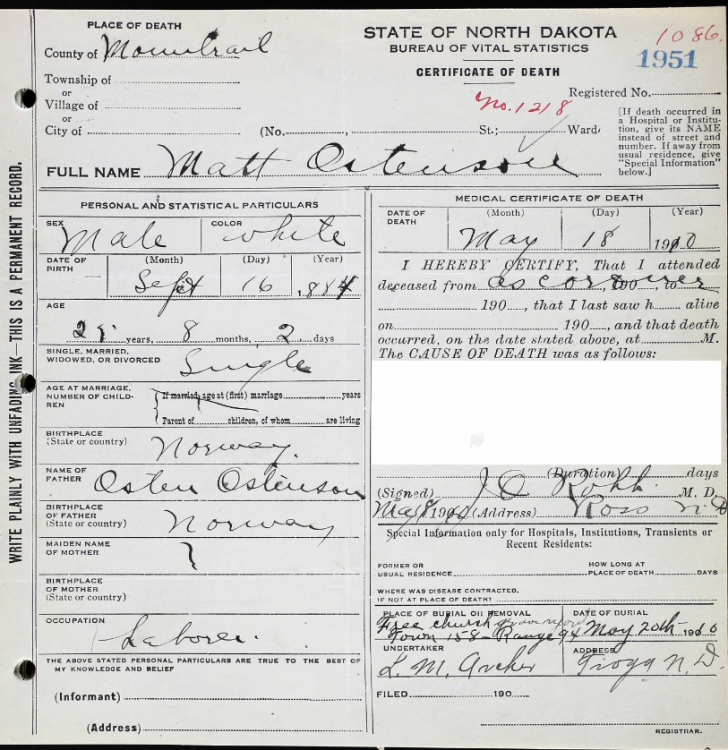 WRITE PLAINLY WITH UNFADING INK—THIS IS A PERMANENT RECORD.
PLACE OF DEATH
County of Mountrail
Township of
or
Village of
or
City of
(No. St.; Ward)
STATE OF NORTH DAKOTA
BUREAU OF VITAL STATISTICS
CERTIFICATE OF DEATH
1086.
1951
Registered No.
No. 1218
[If death occurred in
a Hospital or Institu-
tion, give its NAME
instead of street and
number. If away from
usual residence, give
"Special Information"
below.]
FULL NAME Matt Ostenson
PERSONAL AND STATISTICAL PARTICULARS
SEX
Male
COLOR
white
DATE OF
BIRTH
(Month) (Day) (Year)
Sept 16 1884
AGE
25 years, 8 months, 2 days
SINGLE, MARRIED,
WIDOWED, OR DIVORCED
Single
AGE AT MARRIAGE,
NUMBER OF CHILD-
REN
If married, age at (first) marriage years
Parent of children, of whom are living
BIRTHPLACE
(State or country)
Norway.
NAME OF
FATHER
Osten Ostenson
BIRTHPLACE
OF FATHER
(State or country)
Norway
MAIDEN NAME
OF MOTHER
BIRTHPLACE
OF MOTHER
(State or country)
OCCUPATION
Laborer.
THE ABOVE STATED PERSONAL PARTICULARS ARE TRUE TO THE BEST OF
MY KNOWLEDGE AND BELIEF
(Informant)
(Address)
MEDICAL CERTIFICATE OF DEATH
DATE OF
DEATH
(Month) (Day) (Year)
May 18 1910
I HEREBY CERTIFY, That I attended
deceased from as coroner 190 , to
190 , that I last saw h alive
on 190 , and that death
occurred, on the date stated above, at M.
The CAUSE OF DEATH was as follows:
(Duration) days
(Signed) M. D.
190 (Address) Ross N. D
Special Information only for Hospitals, Institutions, Transients or
Recent Residents:
FORMER OR
USUAL RESIDENCE
HOW LONG AT
PLACE OF DEATH DAYS
WHERE WAS DISEASE CONTRACTED,
IF NOT AT PLACE OF DEATH?
PLACE OF BURIAL OR REMOVAL
Free church
Town 158- Range 94
DATE OF BURIAL
May 20th 1910
UNDERTAKER
L. M. Archer
ADDRESS
Tioga N. D
FILED 190
REGISTRAR.